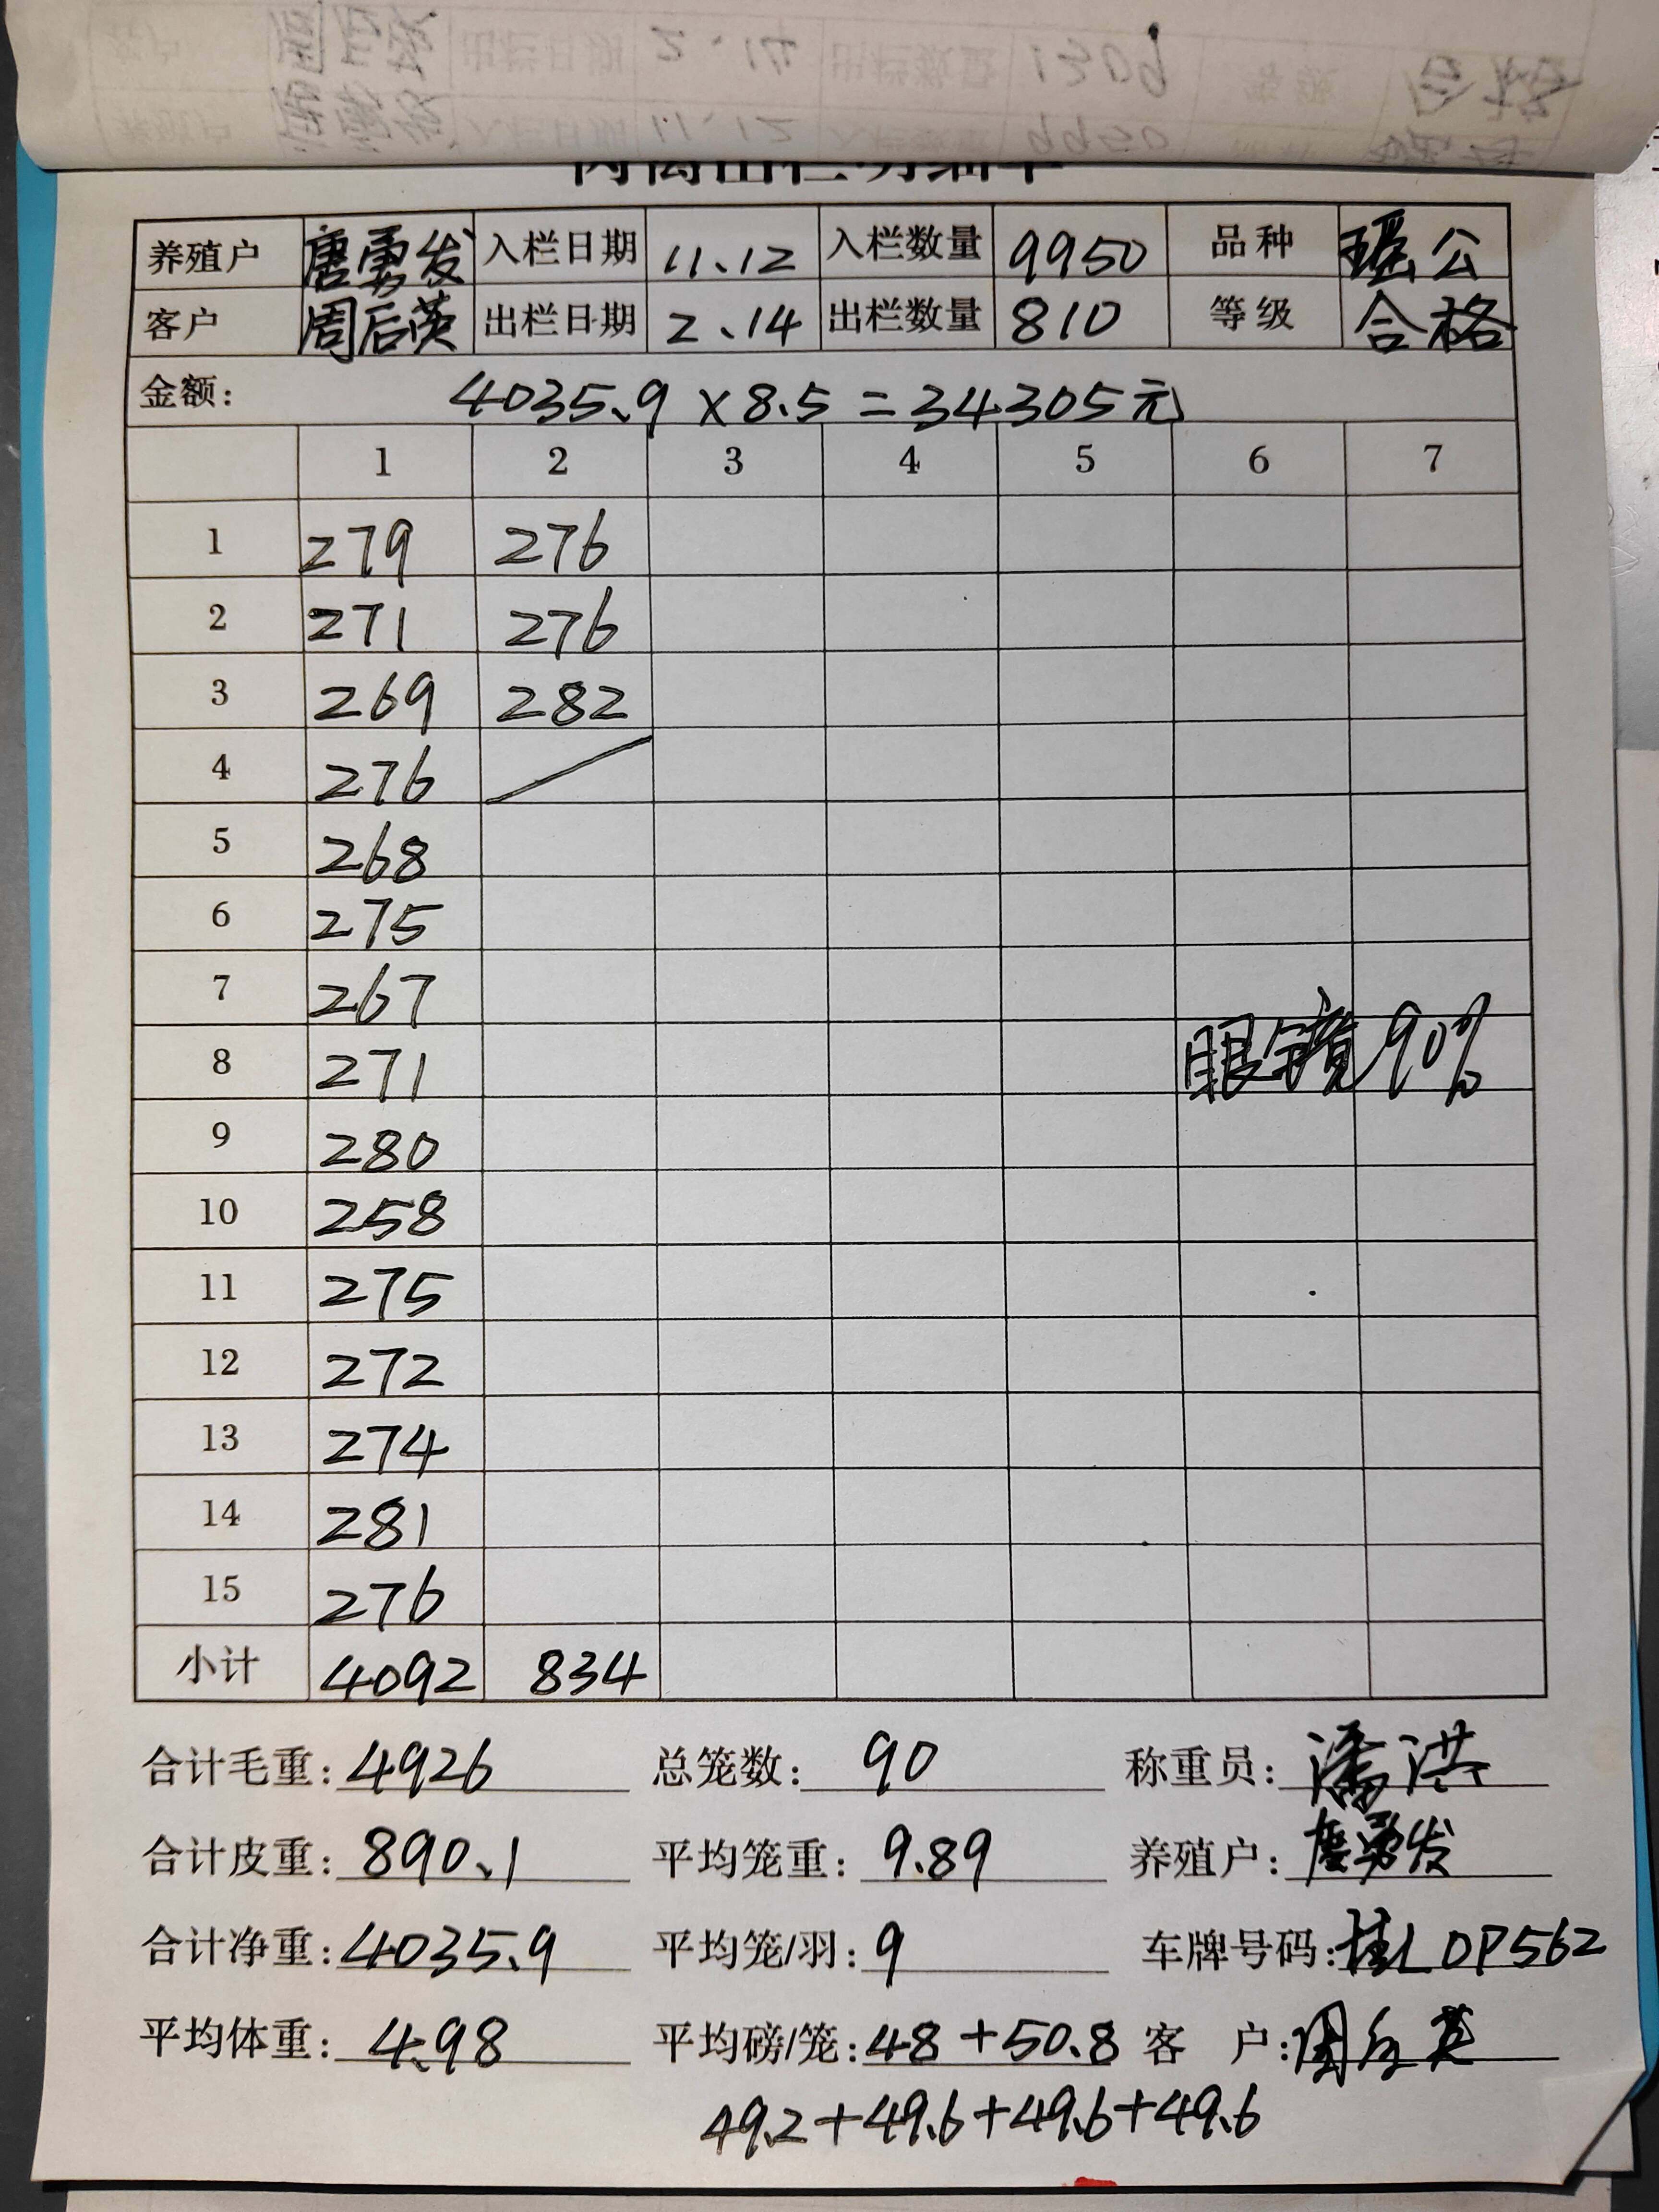 养殖户 唐勇发 入栏日期 11.12 入栏数量 9950 品种 瑶公
客户 周后英 出栏日期 2.14 出栏数量 810 等级 合格
金额: 4035.9×8.5=34305元
1 2 3 4 5 6 7
1 279 276
2 271 276
3 269 282
4 276
5 268
6 275
7 267
8 271 眼镜90%
9 280
10 258
11 275
12 272
13 274
14 281
15 276
小计 4092 834
合计毛重: 4926 总笼数: 90 称重员: 潘洪
合计皮重: 890.1 平均笼重: 9.89 养殖户: 唐勇发
合计净重: 4035.9 平均笼/羽: 9 车牌号码: 桂L0P562
平均体重: 4.98 平均磅/笼: 48+50.8 客 户: 周后英
49.2+49.6+49.6+49.6